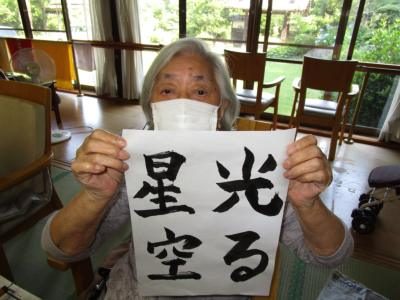 光る
星空